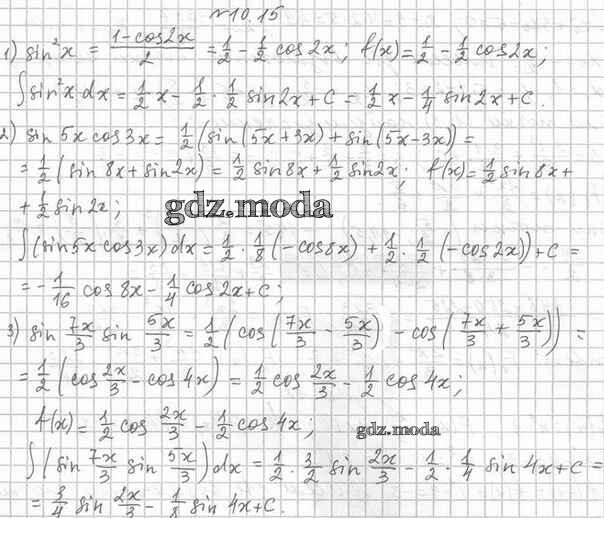 №10.15
1) sin²x = (1-cos2x)/2 = 1/2 - 1/2 cos 2x; f(x) = 1/2 - 1/2 cos2x;
∫sin²x·dx = 1/2 x - 1/2 · 1/2 sin2x + C = 1/2 x - 1/4 sin 2x + C.
2) sin 5x cos 3x = 1/2 (sin(5x+3x) + sin(5x-3x)) =
= 1/2 (sin 8x + sin2x) = 1/2 sin8x + 1/2 sin2x; f(x) = 1/2 sin 8x +
+ 1/2 sin 2x;
gdz.moda
∫(sin5x cos3x)dx = 1/2 · 1/8 (-cos8x) + 1/2 · 1/2 (-cos2x)) + C =
= - 1/16 cos 8x - 1/4 cos 2x + C;
3) sin 7x/3 sin 5x/3 = 1/2 (cos(7x/3 - 5x/3) - cos(7x/3 + 5x/3)) =
= 1/2 (cos 2x/3 - cos 4x) = 1/2 cos 2x/3 - 1/2 cos 4x;
f(x) = 1/2 cos 2x/3 - 1/2 cos 4x;
gdz.moda
∫(sin 7x/3 sin 5x/3)dx = 1/2 · 3/2 sin 2x/3 - 1/2 · 1/4 sin 4x + C =
= 3/4 sin 2x/3 - 1/8 sin 4x + C.